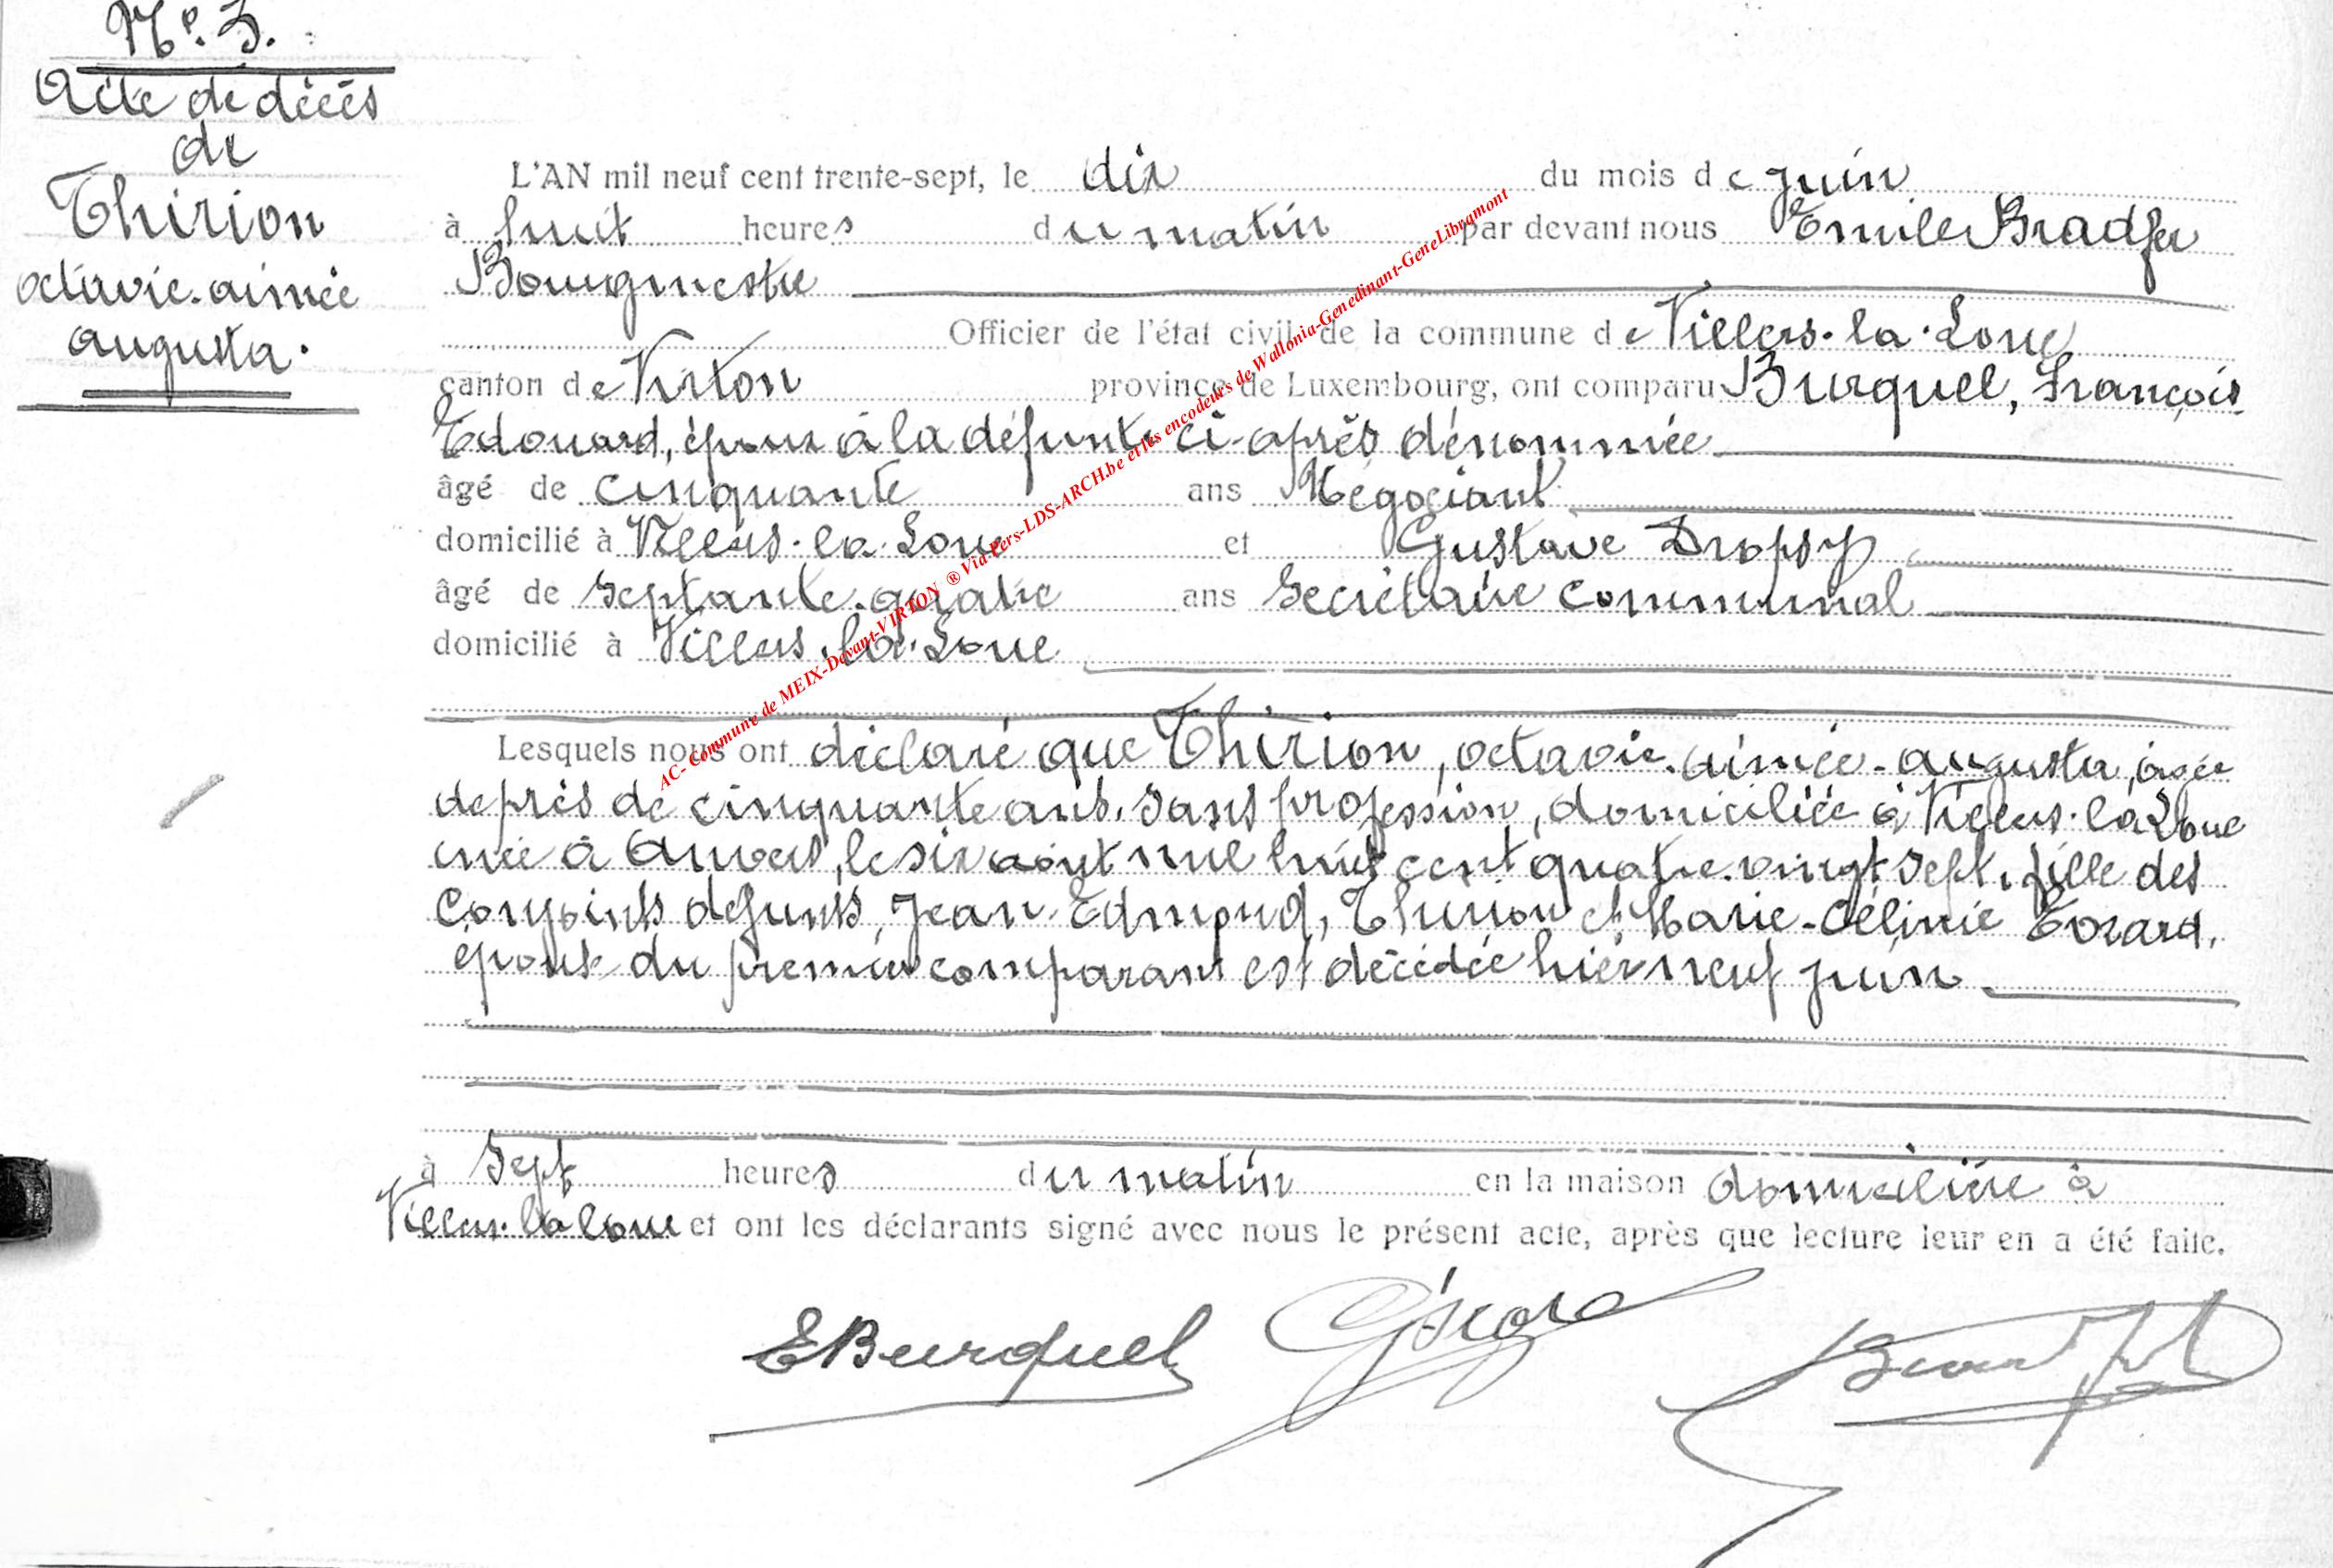 N°. 3.
Acte de décès
de
Thirion
octavie-aimée
augusta.
L'AN mil neuf cent trente-sept, le dix du mois de juin
à huit heures du matin par devant nous Emile Bradfer
Bourgmestre
Officier de l'état civil de la commune de Villers-la-Loue
canton de Virton province de Luxembourg, ont comparu Burquel, François
Edouard, époux à la défunte ci-après dénommée
âgé de cinquante ans Négociant
domicilié à Villers-la-Loue et Gustave Dropsy
âgé de septante-quatre ans Secrétaire communal
domicilié à Villers-la-Loue
Lesquels nous ont déclaré que Thirion, octavie-aimée-augusta, âgée
de près de cinquante ans, sans profession, domiciliée à Villers-la-Loue
née à Anvers, le six août mil huit cent quatre-vingt sept, fille des
conjoints défunts, Jean-Edmond, Thirion et Marie-Célinie Evrard,
épouse du premier comparant est décédée hier neuf juin
à sept heures du matin en la maison domiciliée à
Villers-la-Loue et ont les déclarants signé avec nous le présent acte, après que lecture leur en a été faite.
EBurquel
AC- Commune de MEIX-Devant-VIRTON ® Via Pers-LDS-ARCH.be et les encodeurs de Wallonia-Genedinant-GeneLibramont